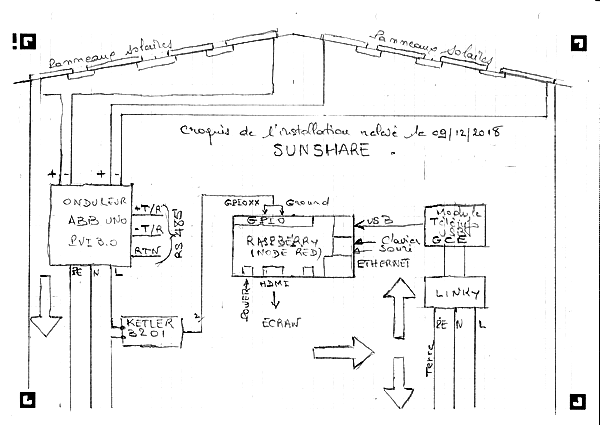 Panneaux Solaires
Panneaux Solaires
Croquis de l'installation relevé le 09/12/2018
SUNSHARE .
+ - + -
ONDULEUR
ABB UNO
PVI 3.0
+T/R
-T/R
RTN
RS 485
PE N L
KETLER
3201
2
GPIOXX
Ground
GPIO
RASPBERRY
(NODE RED)
USB
Clavier
Souris
ETHERNET
POWER
HDMI
ECRAN
Module
Téléinfo
USB
GCE
LINKY
Terre
PE N L